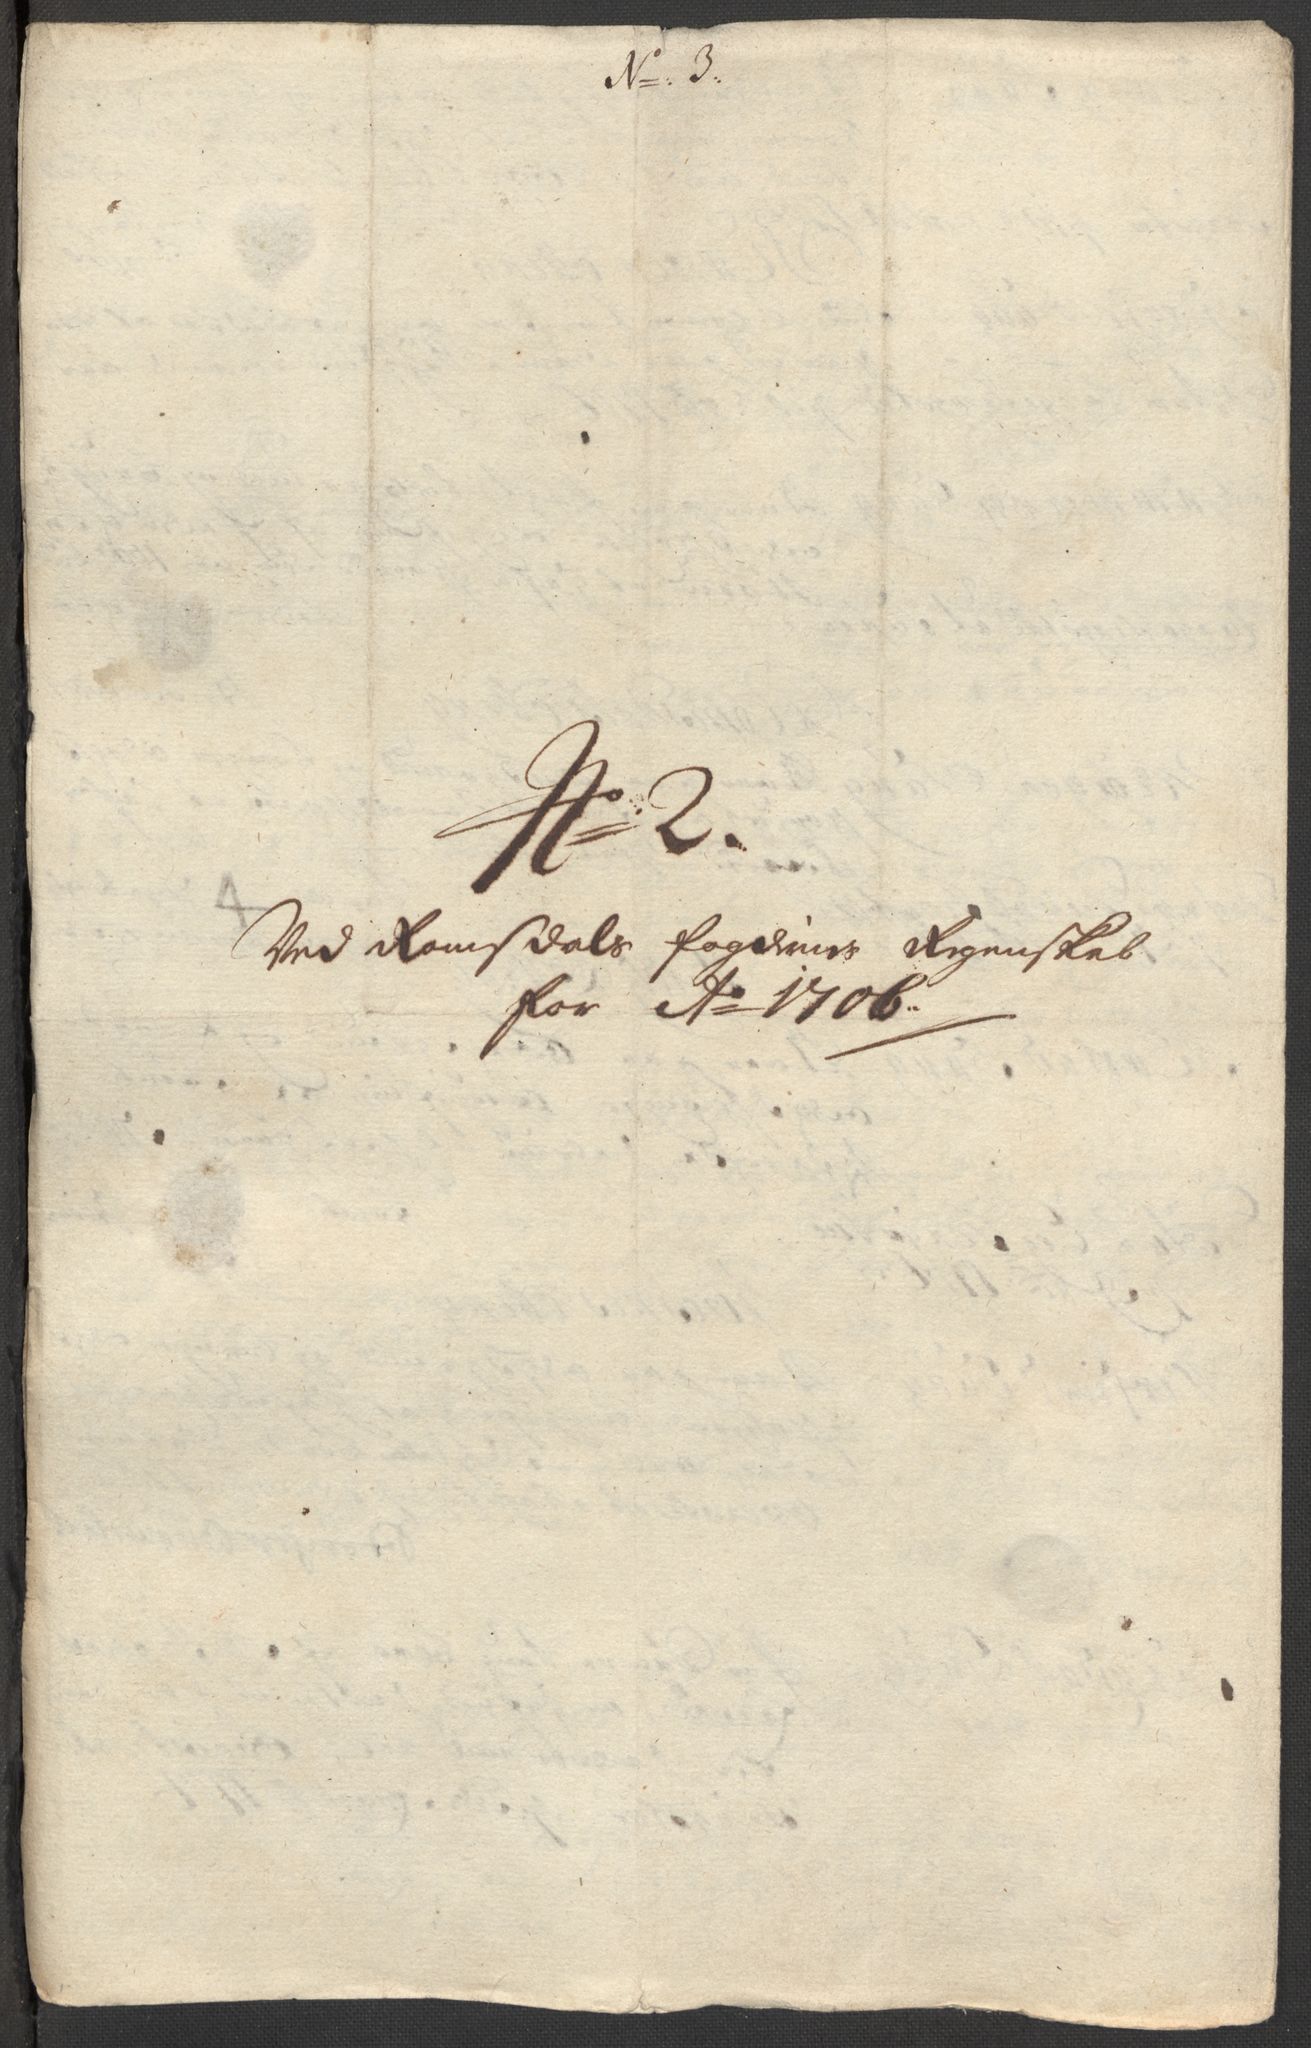 No. 3.
No. 2.
4
Ved Romsdals fogderies Regenskab
for Ao 1706.